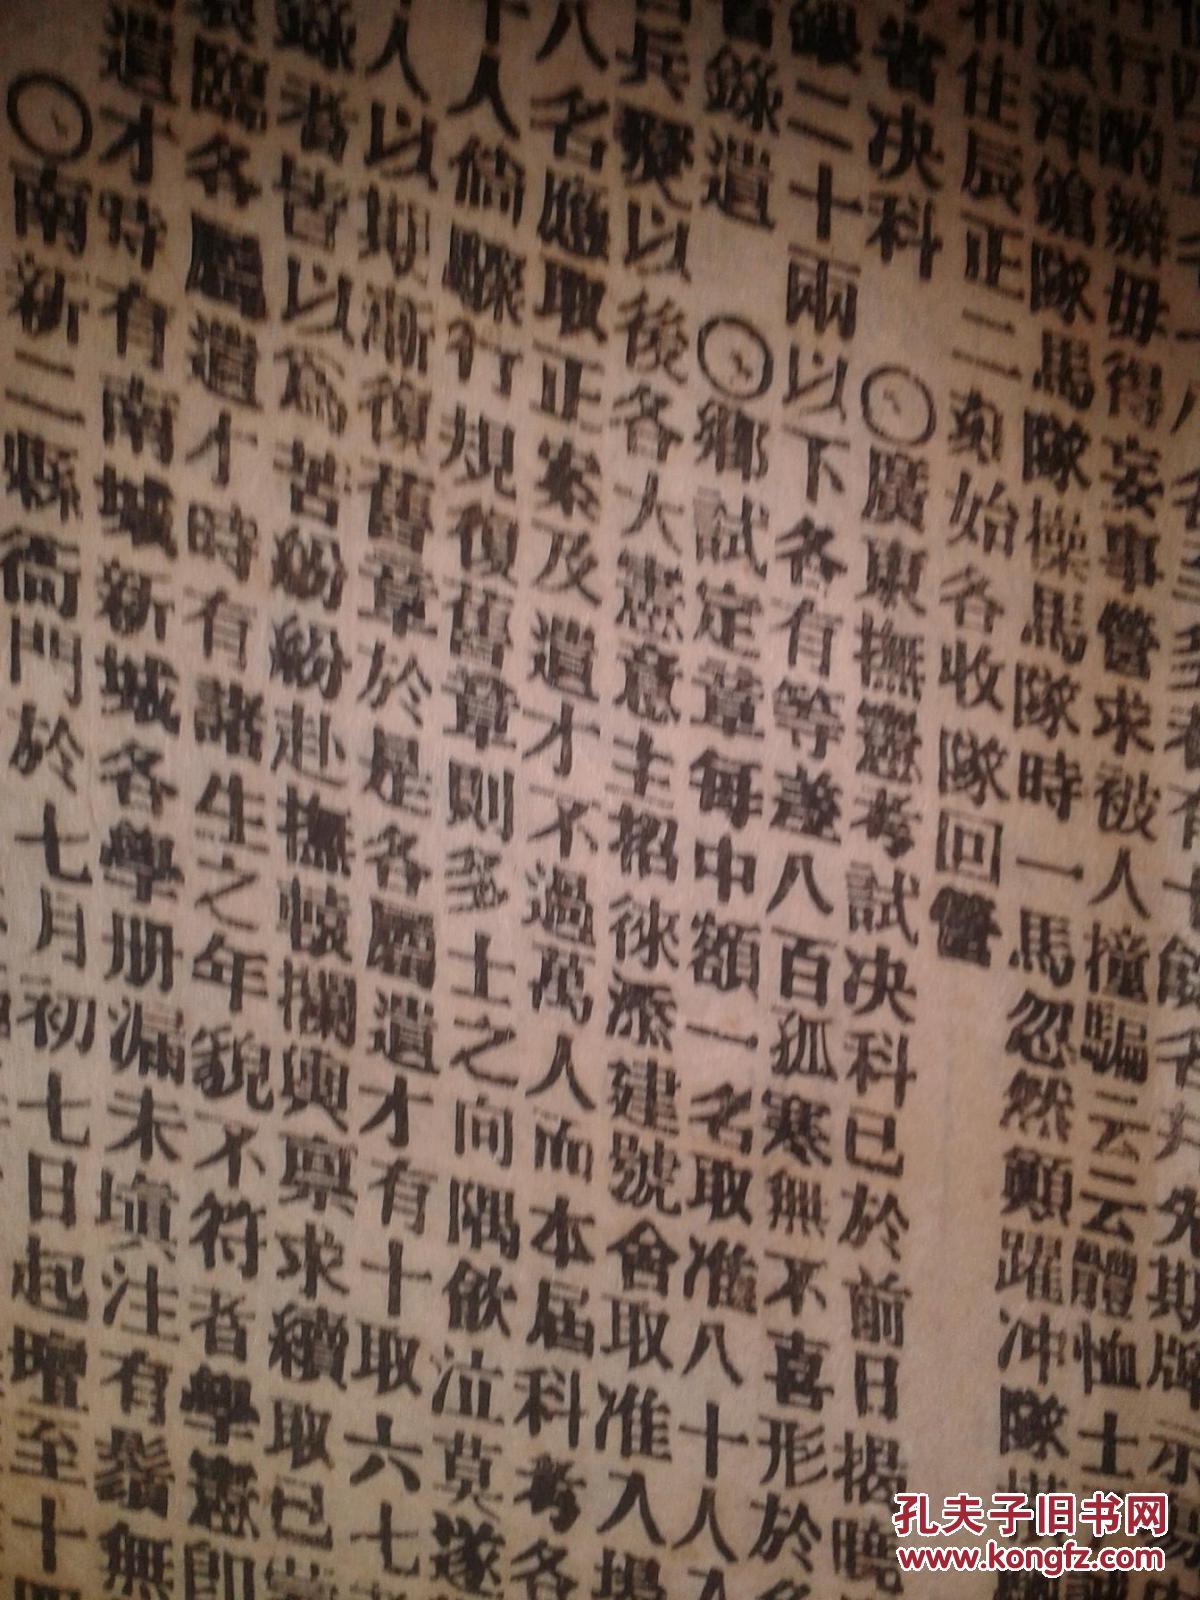 行酌辦毋得妄事營求被人撞騙云云體恤士
演洋鎗隊馬隊操馬隊時一馬忽然顛躍冲隊
和住辰正二刻始各收隊回營
省決科　〇廣東撫憲考試决科已於前日揭曉
銀二十兩以下各有等差八百孤寒無不喜形於
錄遺　〇鄉試定章每中額一名取准八十人
兵燹以後各大憲意主招徠添建號舍取准入場
八名應取正案及遺才不過萬人而本屆科考各
十人倘驟行規復舊章則多士之向隅飲泣莫遂
人以期漸復舊章於是各屬遺才有十取六七
錄者皆以爲苦紛紛赴撫轅攔輿禀求續取已
臨各屬遺才時有諸生之年貌不符者學憲即
遺才時有南城新城各學册漏未填注有鬚無
〇南新二縣衙門於七月初七日起壇至十四
孔夫子旧书网
www.kongfz.com